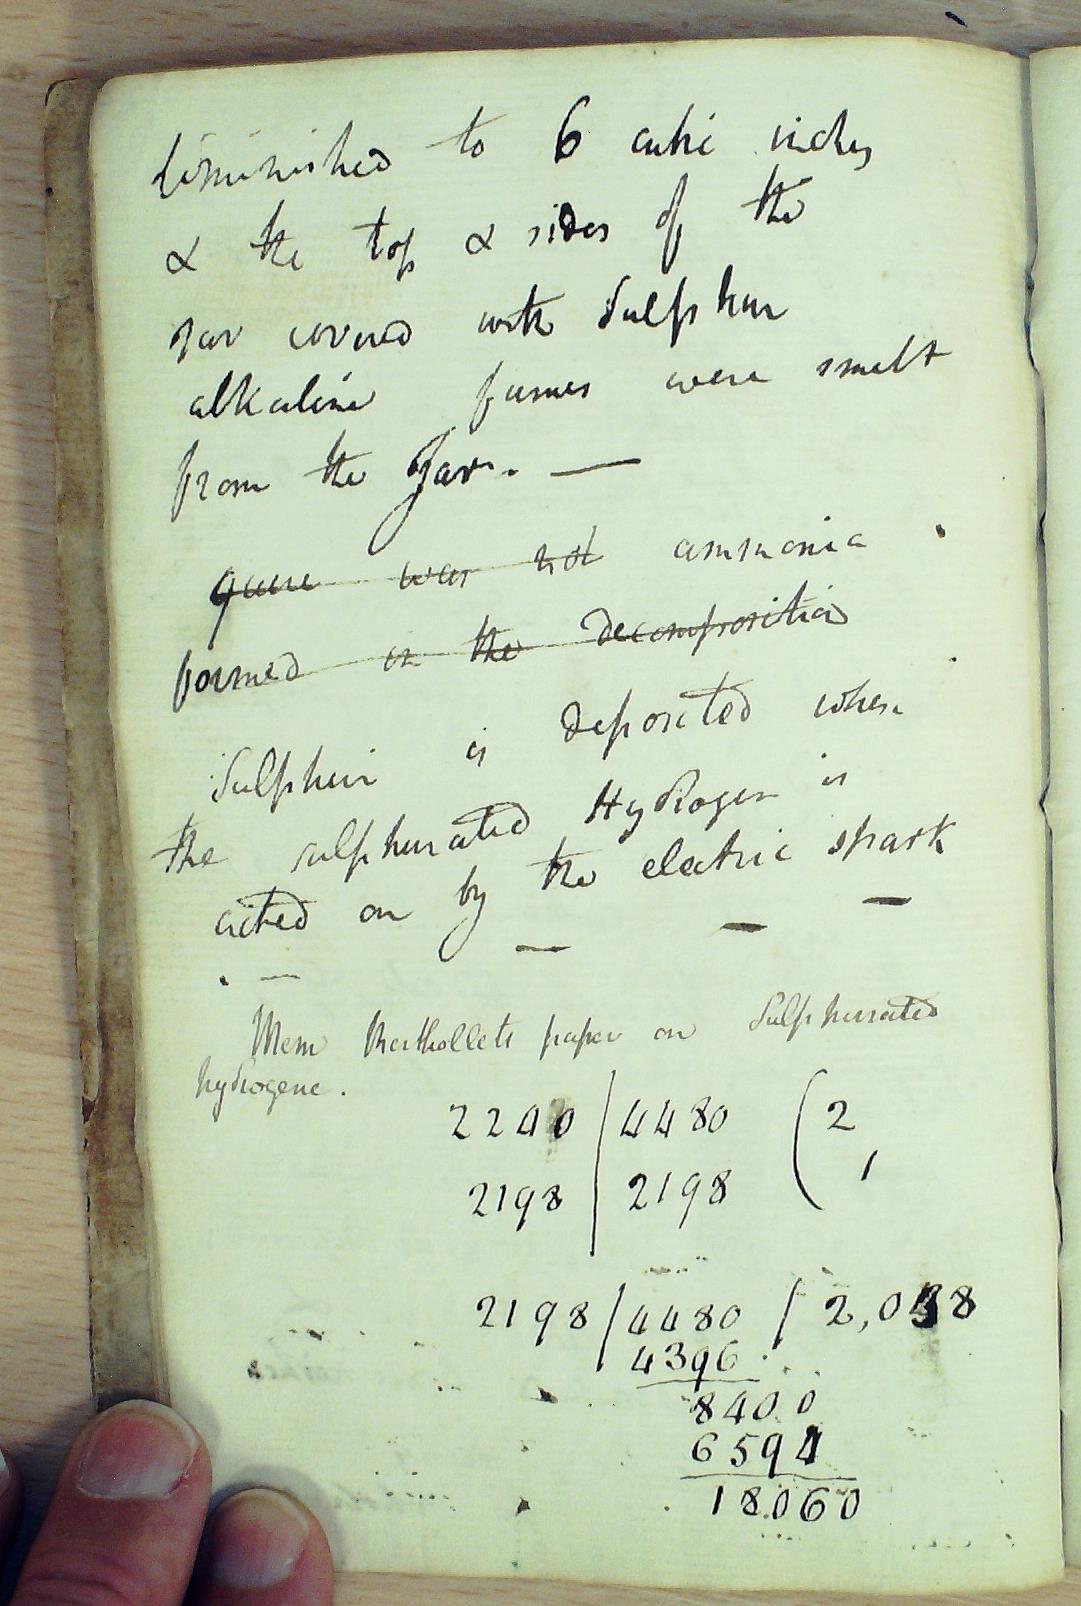 diminished to 6 cubic inches
& the top & sides of the
Jar covered with Sulphur
alkaline fumes were smelt
from the Jar. —
quere was not ammonia
formed in the decomposition
Sulphur is deposited when
the sulphurated Hydrogen is
acted on by the electric spark
. — — — —
Mem Berthollets paper on Sulphurated
hydrogene.
2240 / 4480 ( 2
2198 | 2198 , 1
2198 / 4480 / 2,038
4396
8400
6594
18060